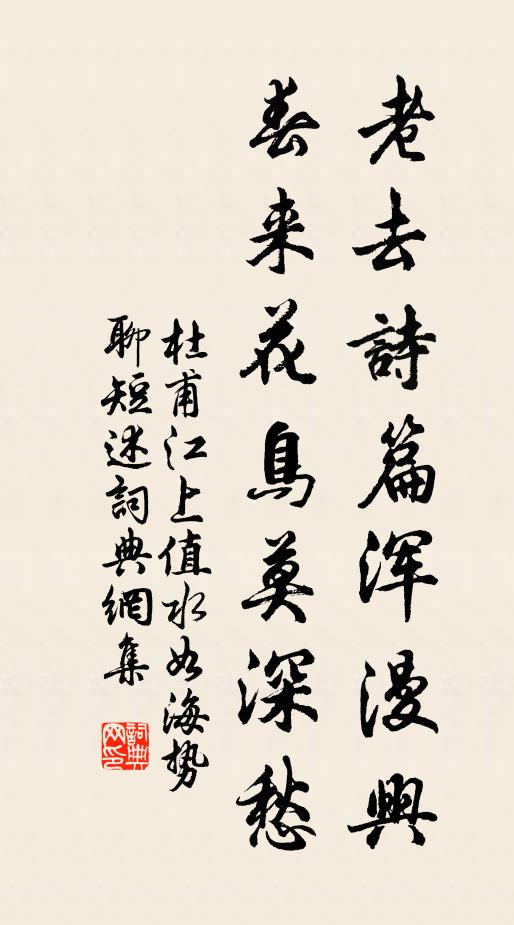 老去詩篇浑漫興
春来花鳥莫深愁
杜甫江上值水如海势
聊短述詞典網集
詞典网印